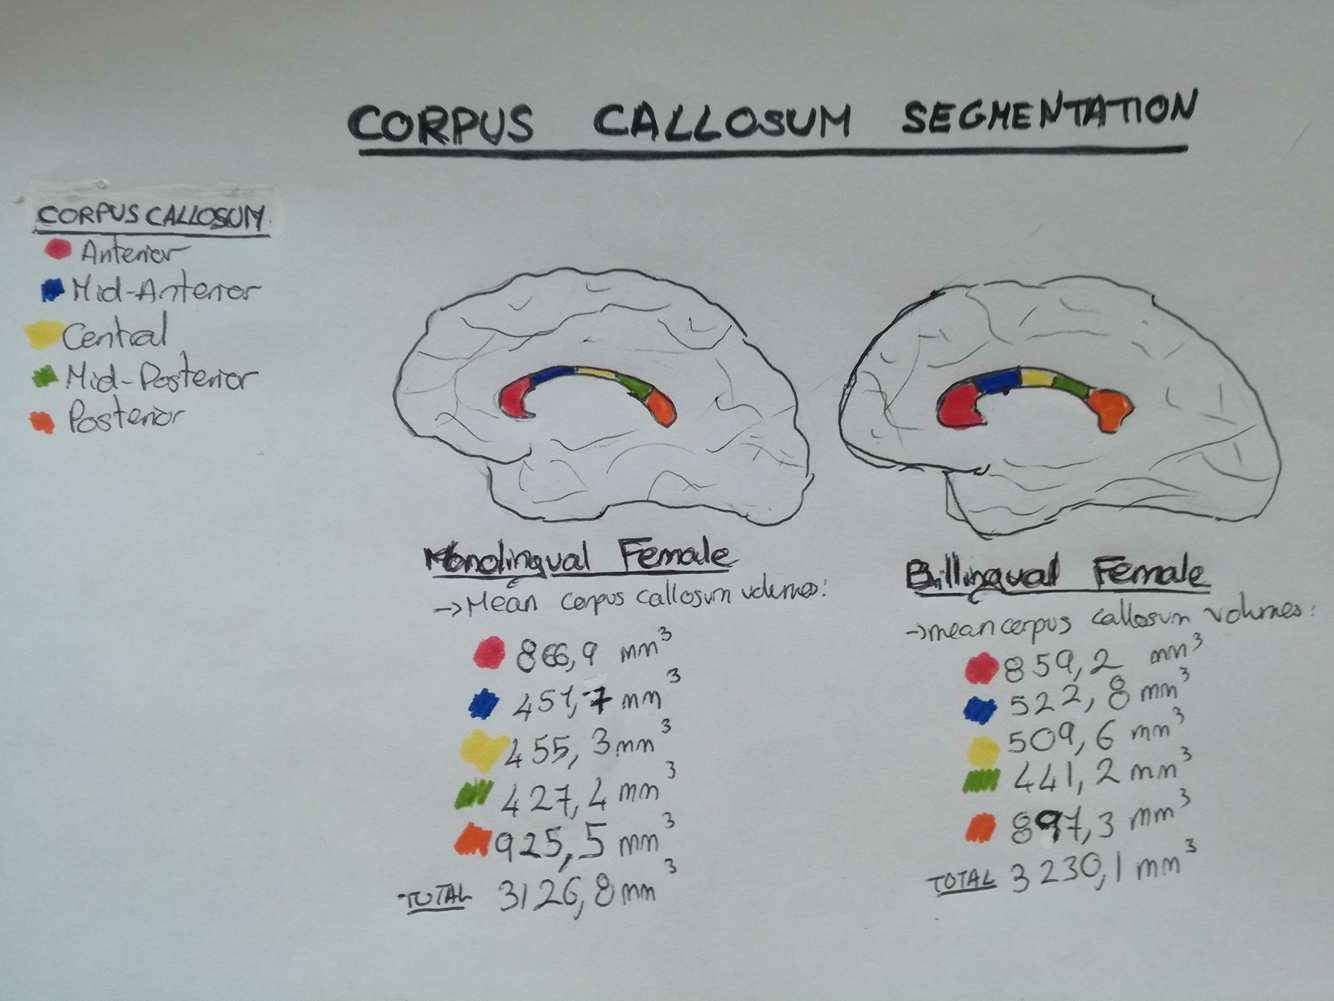 CORPUS CALLOSUM SEGMENTATION
CORPUS CALLOSUM
Anterior
Mid-Anterior
Central
Mid-Posterior
Posterior
Monolingual Female
→Mean corpus callosum volumes:
866,9 mm³
451,7 mm³
455,3 mm³
427,4 mm³
925,5 mm³
TOTAL 3126,8 mm³
Billingual Female
→mean corpus callosum volumes:
859,2 mm³
522,8 mm³
509,6 mm³
441,2 mm³
897,3 mm³
TOTAL 3230,1 mm³